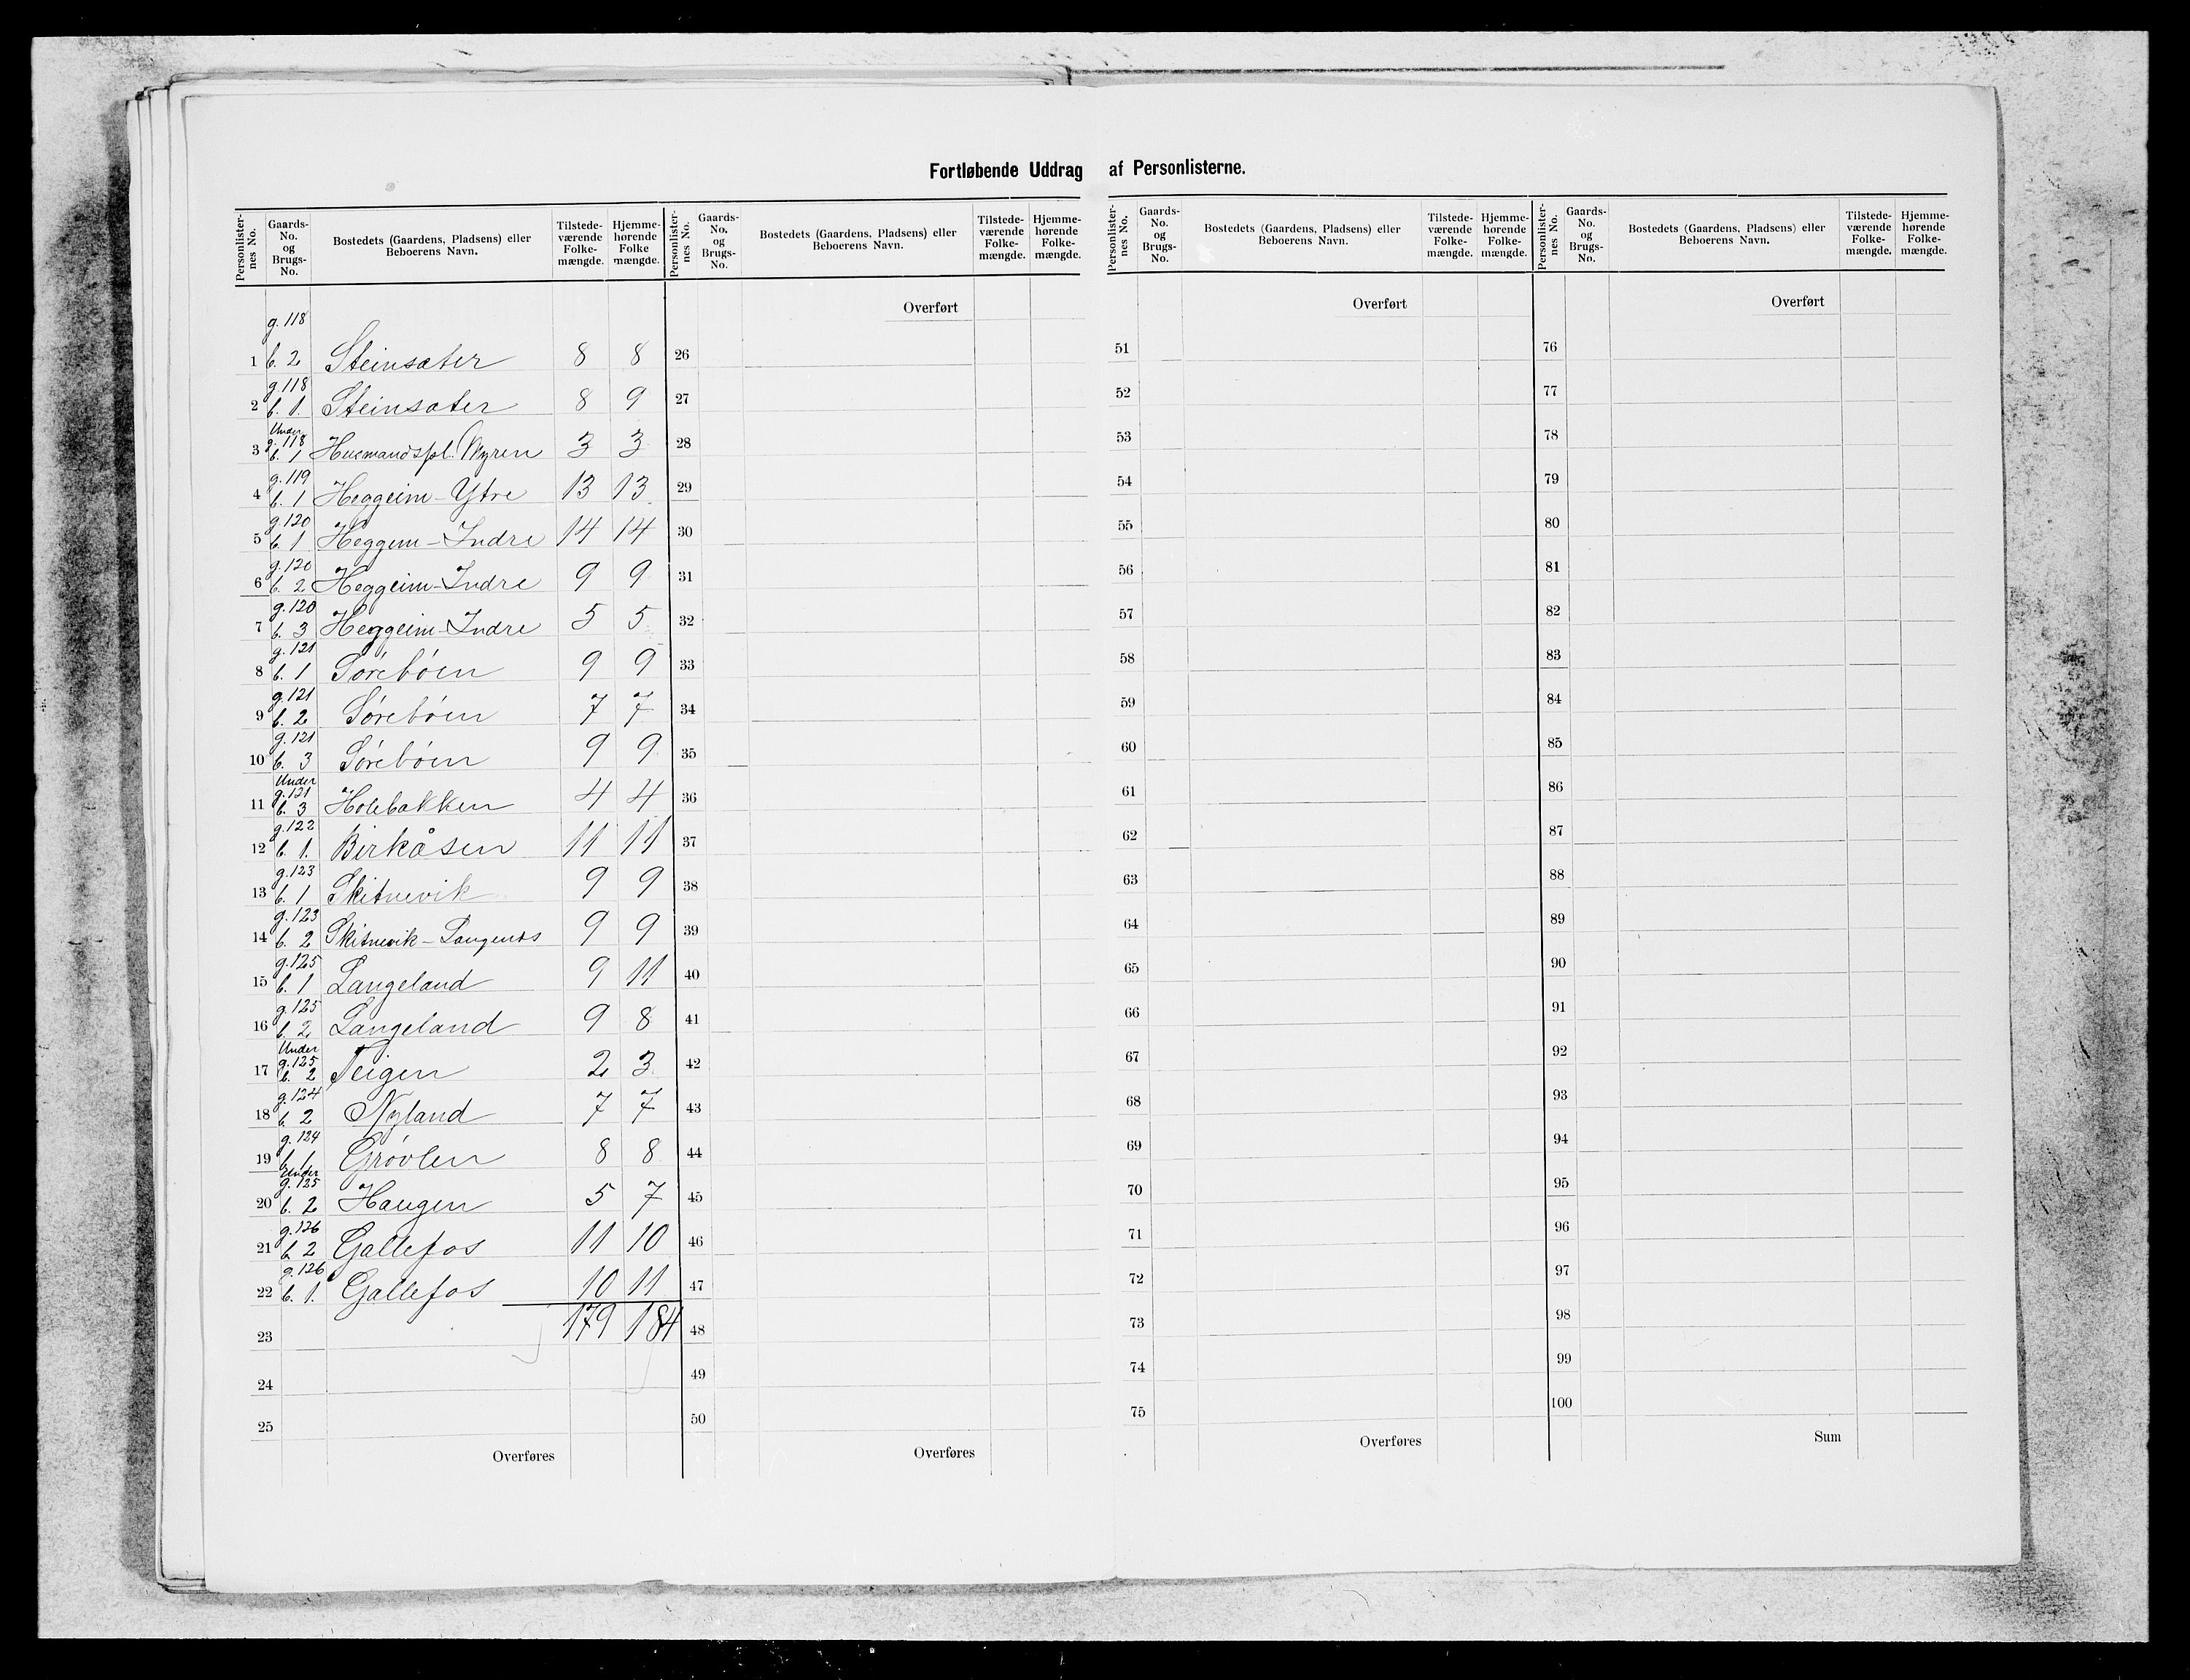 Fortløbende Uddrag af Personlisterne.
Personlisternes No. | Gaards-No. og Brugs-No. | Bostedets (Gaardens, Pladsens) eller Beboerens Navn. | Tilstedeværende Folkemængde. | Hjemmehørende Folkemængde.
1 | g. 118 b. 2 | Steinsæter | 8 | 8
2 | g. 118 b. 1. | Steinsæter | 8 | 9
3 | Under g. 118 b. 1 | Husmandspl. Myren | 3 | 3
4 | g. 119 b. 1 | Heggeim-Ytre | 13 | 13
5 | g. 120 b. 1 | Heggem-Indre | 14 | 14
6 | g. 120 b. 2 | Heggeim-Indre | 9 | 9
7 | g. 120 b. 3 | Heggeim-Indre | 5 | 5
8 | g. 121 b. 1 | Sørebøen | 9 | 9
9 | g. 121 b. 2 | Sørebøen | 7 | 7
10 | g. 121 b. 3 | Sørebøen | 9 | 9
11 | Under g. 121 b. 3 | Holebakken | 4 | 4
12 | g. 122 b. 1. | Birkåsen | 11 | 11
13 | g. 123 b. 1 | Skitnevik | 9 | 9
14 | g. 123 b. 2 | Skitnevik- | 9 | 9
15 | g. 125 b. 1 | Langeland | 9 | 11
16 | g. 125 b. 2 | Langeland | 9 | 8
17 | Under g. 125 b. 2 | Teigen | 2 | 3
18 | g. 124 b. 2 | Nyland | 7 | 7
19 | g. 124 b. 1. | Grøvlen | 8 | 8
20 | Under g. 125 b. 2 | Haugen | 5 | 7
21 | g. 126 b. 2 | Gallefos | 11 | 10
22 | g. 126 b. 1. | Gallefos | 10 | 11
23 | 179 | 184
24
25
Overføres
Personlisternes No. | Gaards-No. og Brugs-No. | Bostedets (Gaardens, Pladsens) eller Beboerens Navn. | Tilstedeværende Folkemængde. | Hjemmehørende Folkemængde.
Overført
26
27
28
29
30
31
32
33
34
35
36
37
38
39
40
41
42
43
44
45
46
47
48
49
50
Overføres
Personlisternes No. | Gaards-No. og Brugs-No. | Bostedets (Gaardens, Pladsens) eller Beboerens Navn. | Tilstedeværende Folkemængde. | Hjemmehørende Folkemængde.
Overført
51
52
53
54
55
56
57
58
59
60
61
62
63
64
65
66
67
68
69
70
71
72
73
74
75
Overføres
Personlisternes No. | Gaards-No. og Brugs-No. | Bostedets (Gaardens, Pladsens) eller Beboerens Navn. | Tilstedeværende Folkemængde. | Hjemmehørende Folkemængde.
Overført
76
77
78
79
80
81
82
83
84
85
86
87
88
89
90
91
92
93
94
95
96
97
98
99
100
Sum